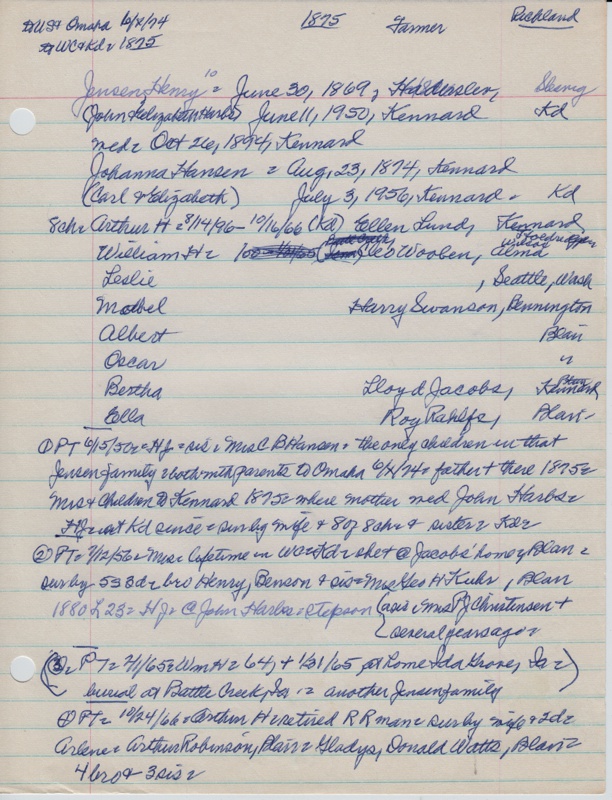 →US & Omaha 6/x/74 1875 Farmer Richland
→WC & Kd = 1875
Jensen Henry 10 = June 30, 1869, Hadersler, Sleswig
(John & Elizabeth Harbs) June 11, 1950, Kennard Kd
med = Oct 26, 1894, Kennard
Johanna Hansen = Aug, 23, 1874, Kennard
(Carl & Elizabeth) July 3, 1956, Kennard = Kd
8ch = Arthur H = 8/14/96 – 10/16/66 (Kd) Ellen Lund, Kennard
William H = Battle Creek Cleo Wooben, Alma
Leslie , Seattle, Wash
Mabel Harry Swanson, Bennington
Albert Blair
Oscar "
Bertha Lloyd Jacobs, Kennard Blair
Ella Roy Rahlfs, Blair =
① PT 6/15/50 = HJ = sis = Mrs C B Hansen = the only children in that
Jensen family = both with parents to Omaha 6/x/74 = father + there 1875 =
Mrs & Children to Kennard 1875 = where mother med John Harbs =
HJ = at Kd since = sur by wife & 8 of 8ch = & sister = Kd =
② PT = 7/12/56 = Mrs = lifetime in WC & Kd = she + @ Jacobs' home, Blair =
sur by 5s 3d = bro Henry, Benson & sis = Mrs Geo H Kuhr, Blair
1880 L 23 = HJ = @ John Harbs = stepson (a sis = Mrs P J Christensen +
several years ago =
(③ = PT = 2/1/65 = Wm H = 64, + 1/31/65, at home Ida Grove, Ia =)
burial at Battle Creek, Ia = another Jensen family
④ PT = 10/24/66 = Arthur H = retired RR man = sur by wife & 2d =
Arlene = Arthur Robinson, Blair = Gladys, Donald Watts, Blair =
4 bro & 3 sis =